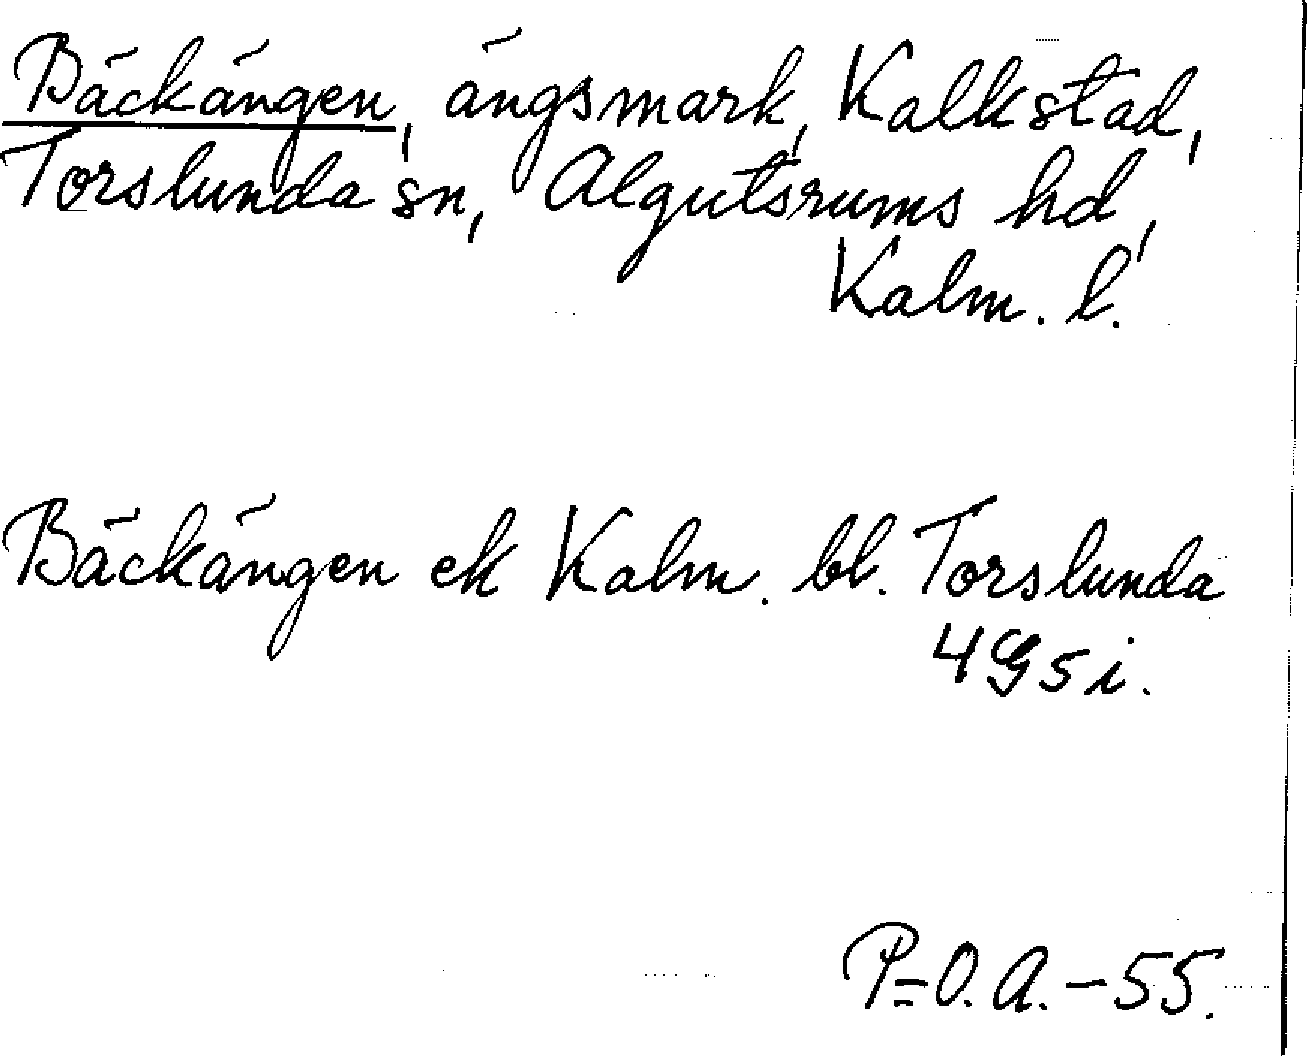 Bäckängen, ängsmark, Kalkstad,
Torslunda sn, Algutsrums hd,
Kalm. l.
Bäckängen ek Kalm. bl. Torslunda
4G5i.
P=O.A.-55.